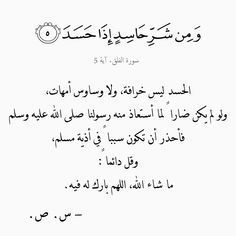 وَمِن شَرِّ حَاسِدٍ إِذَا حَسَدَ ٥
سورة الفلق، آية 5
الحسد ليس خرافة، ولا وساوس أمهات،
ولو لم يكن ضاراً لما أستعاذ منه رسولنا صلى الله عليه وسلم
فأحذر أن تكون سبباً في أذية مسلم،
وقل دائما :
ما شاء الله، اللهم بارك له فيه.
– س. ص.